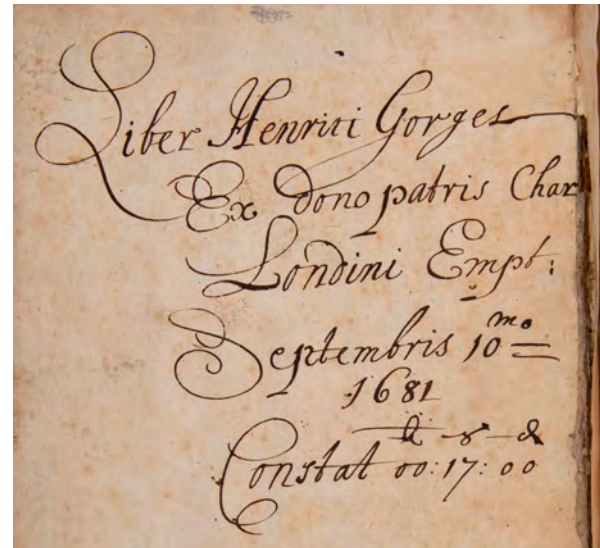 Liber Henrici Gorges
Ex dono patris Char
Londini Empt:
Septembris 10mo
1681
li s d
Constat 00:17:00